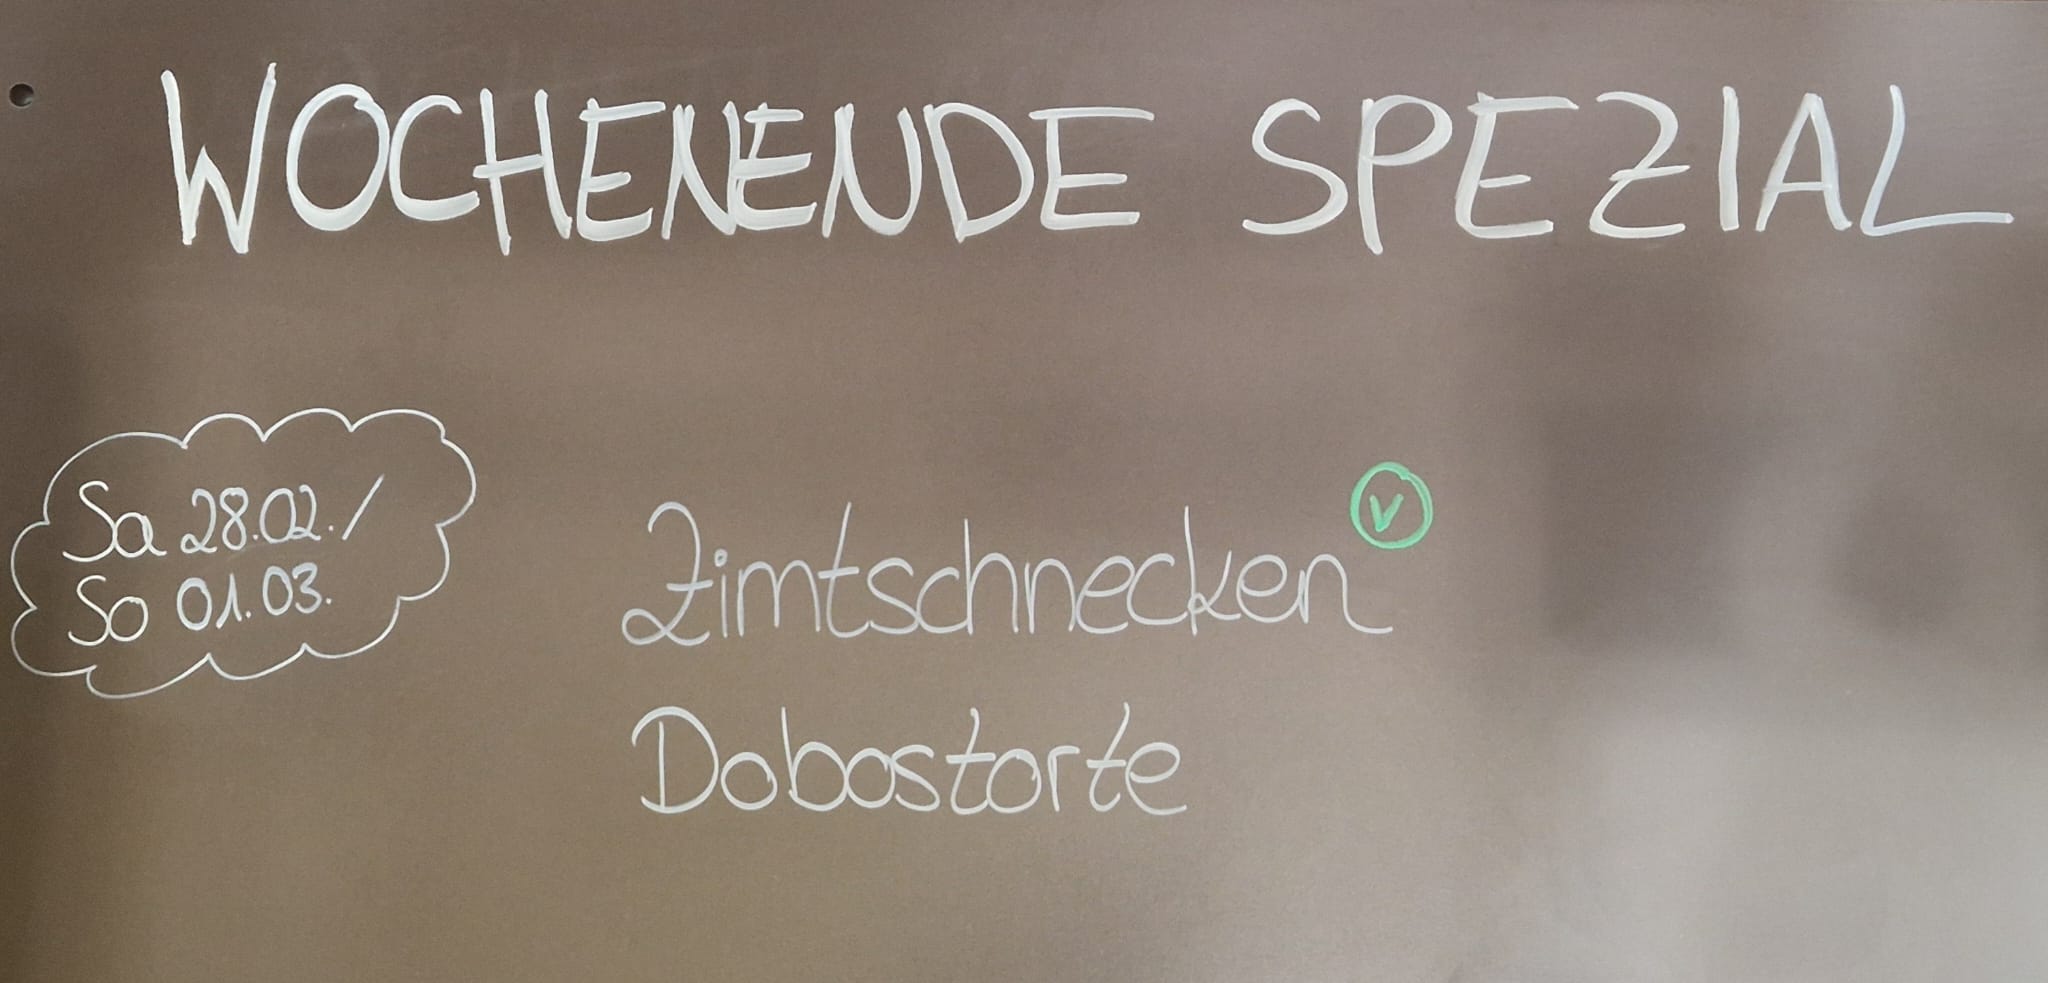 WOCHENENDE SPEZIAL
Sa 28.02./
So 01.03.
Zimtschnecken V
Dobostorte